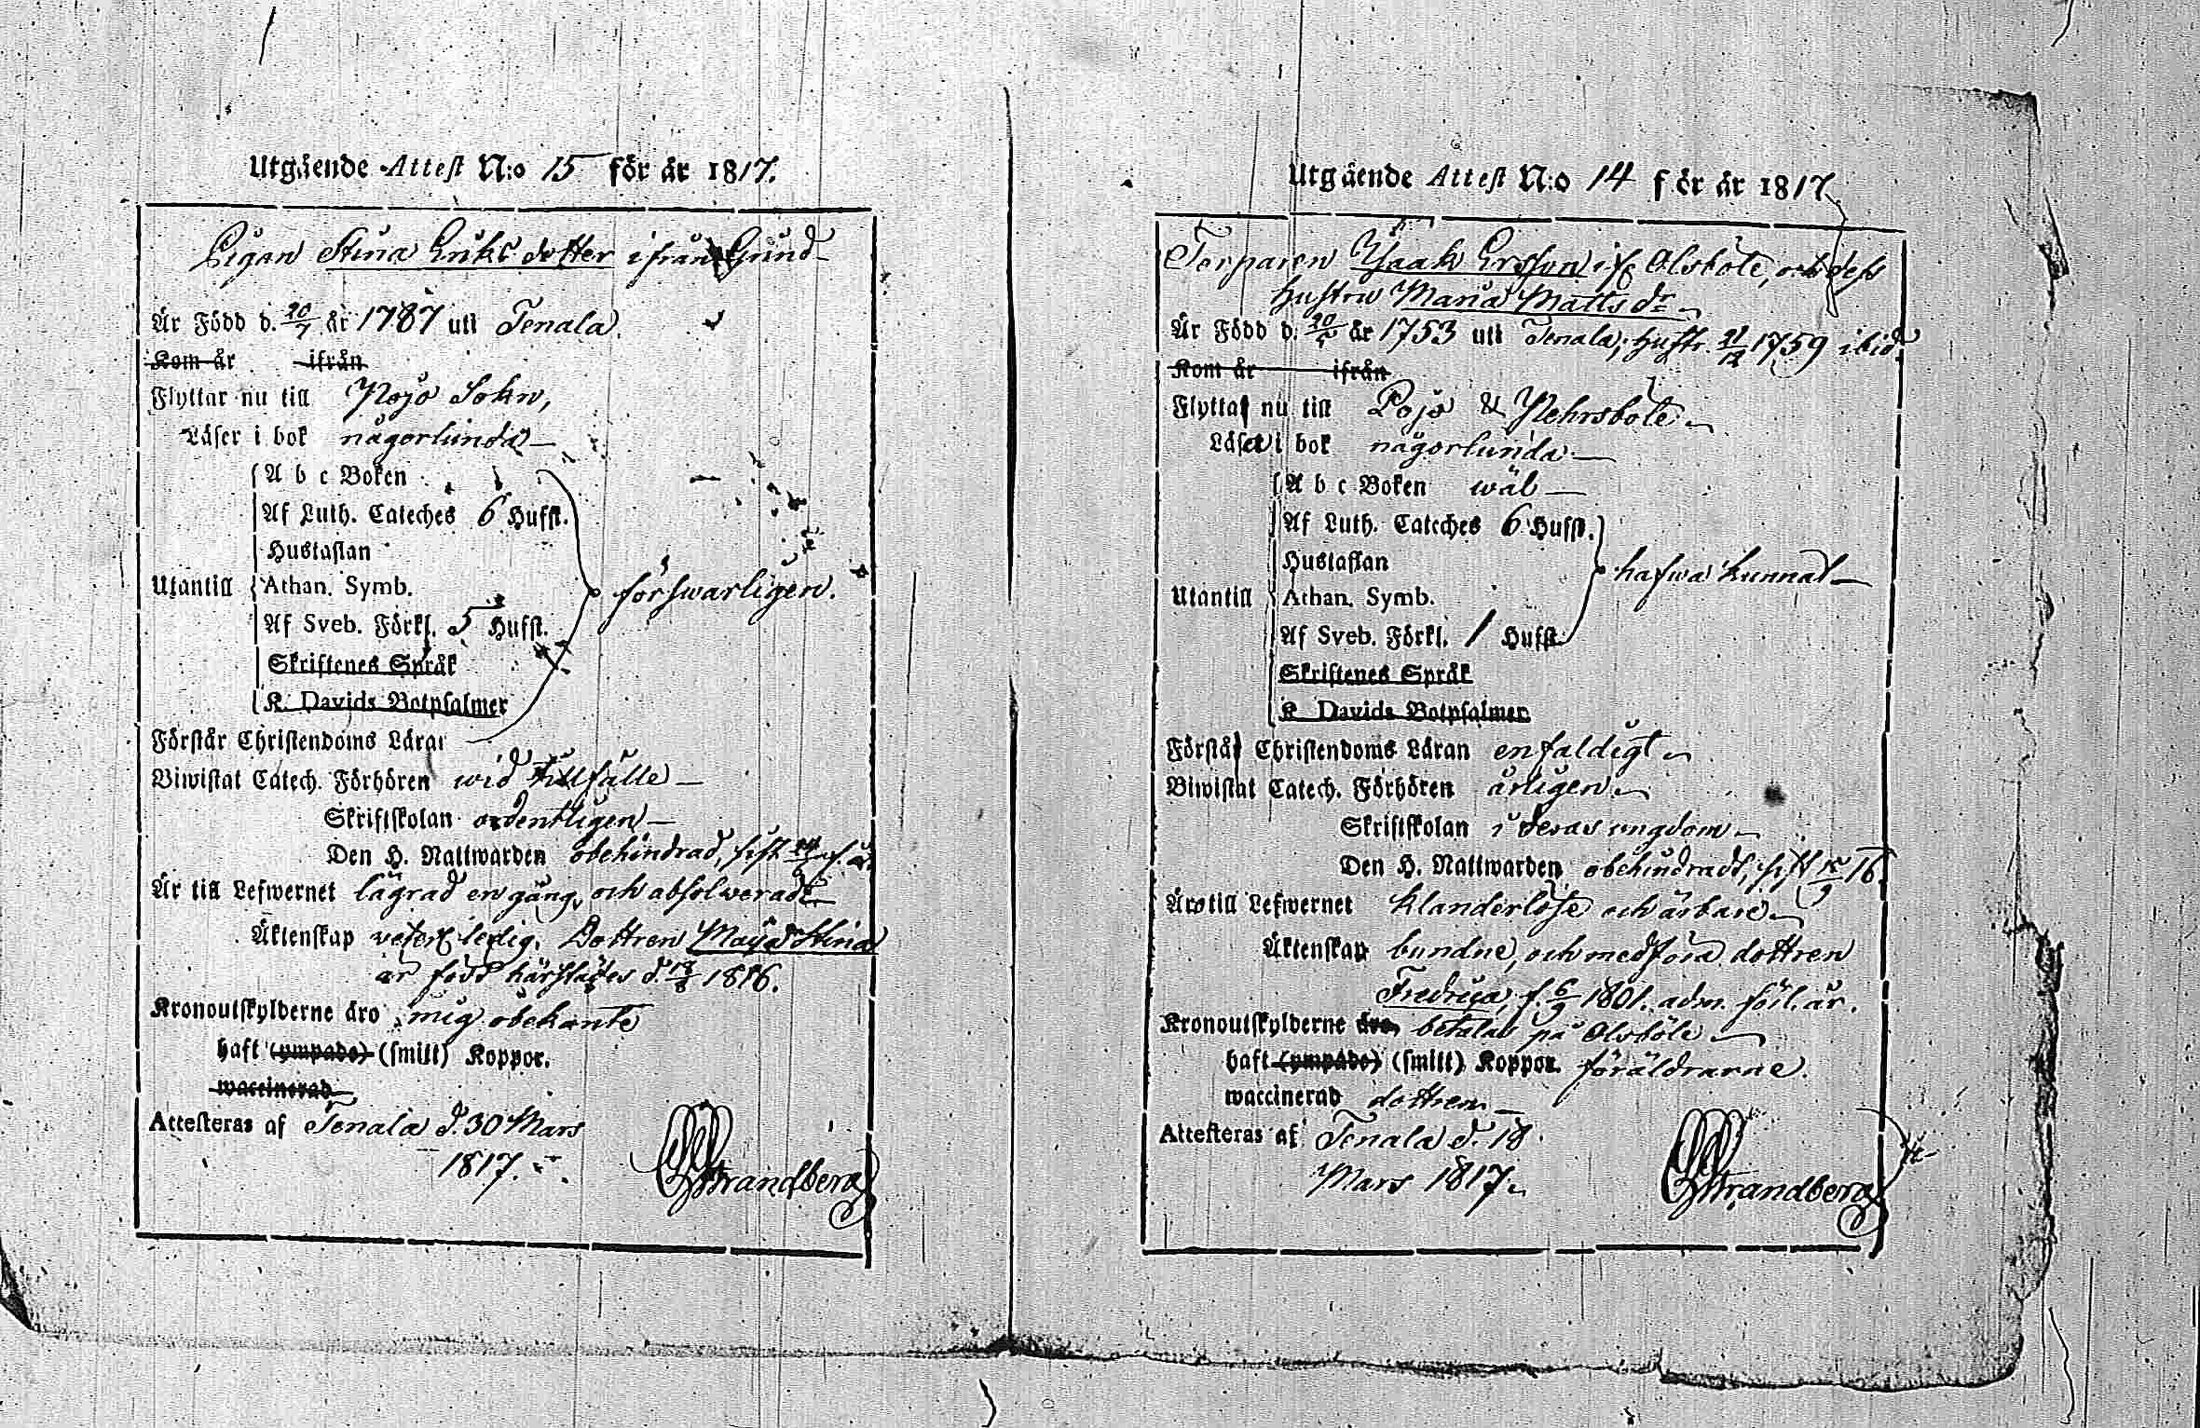 Utgående Attest N:o 15 för år 1817.
Pigan Stina Eriks dotter ifrån Grund
Är Född d. 20/7 år 1787 uti Tenala.
Kom år ifrån
Flyttar nu till Pojo Sokn,
Läser i bok någorlunda
A b c Boken
Af Luth. Cateches 6 Hufst.
Hustaflan
Utantill Athan. Symb. förswarligen.
Af Sveb. Förkl. 5 Hufst.
Skriftenes Språk
K. Davids Botpsalmer
Förstår Christendoms Läran
Biwistat Catech. Förhören wid tillfälle
Skriftskolan ordentligen
Den H. Nattwarden obehindrad, sist
Är till Lefwernet lägrad en gång, och absolwerad
Äktenskap ledig. Dottren Maja Stina
är född härstädes d. 1816.
Kronoutskylderne äro mig obekante
haft (ympade) (smitt) Koppor.
waccinerad
Attesteras af Tenala d. 30 Mars
1817.
Strandberg
Utgående Attest N:o 14 för år 1817
Torparen Isaak Ersson if. Olsböle, och dess
hustru Maria Matts dr
Är Född d. 20/5 år 1753 uti Tenala, hustr. 21/12 1759 ibid.
Kom år ifrån
Flytta nu till Pojo &
Läsa i bok någorlunda
A b c Boken wäl
Af Luth. Cateches 6 Hufst.
Hustaflan hafwa kunnat
Utantill Athan. Symb.
Af Sveb. Förkl. 1 Hufst.
Skriftenes Språk
K. Davids Botpsalmer
Förstå Christendoms Läran enfaldigt
Biwistat Catech. Förhören årligen
Skriftskolan i deras ungdom
Den H. Nattwarden obehindradt, sist 15/9 16.
Äro till Lefwernet klanderlöse och ärbare
Äktenskap bundne, och medföra dottren
Fredrica, f. 6/9 1801. adm. förl. år.
Kronoutskylderne äro betalas på Olsböle
haft (ympade) (smitt) Koppor. föräldrarne.
waccinerad dottren
Attesteras af Tenala d. 18
Mars 1817
Strandberg